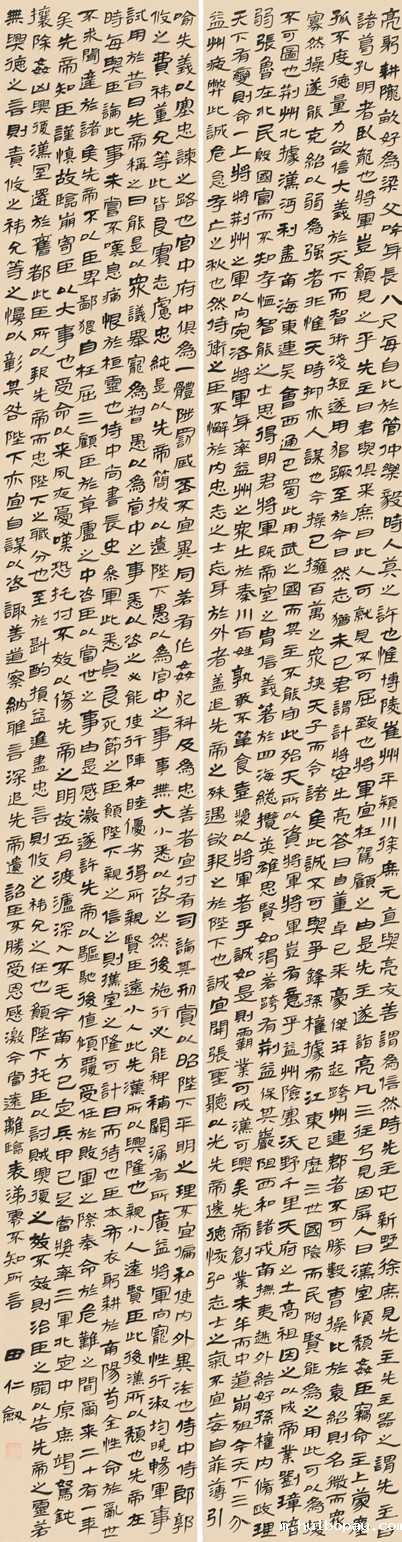 亮躬耕隴畝好為梁父吟身長八尺每自比於管仲樂毅時人莫之許也惟博陵崔州平穎川徐庶元直與亮友善謂為信然時先主屯新野徐庶見先主先主器之謂先主曰
諸葛孔明者臥龍也將軍豈願見之乎先主曰君與俱來庶曰此人可就見不可屈致也將軍宜枉駕顧之由是先主遂詣亮凡三往乃見因屏人曰漢室傾頹姦臣竊命主上蒙塵
孤不度德量力欲信大義於天下而智術淺短遂用猖蹶至於今日然志猶未已君謂計將安出亮答曰自董卓已來豪傑並起跨州連郡者不可勝數曹操比於袁紹則名微而眾
寡然操遂能克紹以弱為強者非惟天時抑亦人謀也今操已擁百萬之眾挾天子而令諸侯此誠不可與爭鋒孫權據有江東已歷三世國險而民附賢能為之用此可以為援
不可圖也荊州北據漢沔利盡南海東連吳會西通巴蜀此用武之國而其主不能守此殆天所以資將軍將軍豈有意乎益州險塞沃野千里天府之土高祖因之以成帝業劉璋暗
弱張魯在北民殷國富而不知存恤智能之士思得明君將軍既帝室之胄信義著於四海總攬英雄思賢如渴若跨有荊益保其巖阻西和諸戎南撫夷越外結好孫權內脩政理
天下有變則命一上將將荊州之軍以向宛洛將軍身率益州之眾出於秦川百姓孰敢不簞食壺漿以將軍者乎誠如是則霸業可成漢可興矣先帝創業未半而中道崩殂今天下三分
益州疲弊此誠危急存亡之秋也然侍衛之臣不懈於內忠志之士忘身於外者蓋追先帝之殊遇欲報之於陛下也誠宜開張聖聽以光先帝遺德恢弘志士之氣不宜妄自菲薄引
喻失義以塞忠諫之路也宮中府中俱為一體陟罰臧否不宜異同若有作姦犯科及為忠善者宜付有司論其刑賞以昭陛下平明之理不宜偏私使內外異法也侍中侍郎郭
攸之費禕董允等此皆良實志慮忠純是以先帝簡拔以遺陛下愚以為宮中之事事無大小悉以咨之然後施行必能裨補闕漏有所廣益將軍向寵性行淑均曉暢軍事
試用於昔日先帝稱之曰能是以眾議舉寵為督愚以為營中之事悉以咨之必能使行陣和睦優劣得所親賢臣遠小人此先漢所以興隆也親小人遠賢臣此後漢所以傾頹也先帝在
時每與臣論此事未嘗不嘆息痛恨於桓靈也侍中尚書長史參軍此悉貞良死節之臣願陛下親之信之則漢室之隆可計日而待也臣本布衣躬耕於南陽苟全性命於亂世
不求聞達於諸侯先帝不以臣卑鄙猥自枉屈三顧臣於草廬之中咨臣以當世之事由是感激遂許先帝以驅馳後值傾覆受任於敗軍之際奉命於危難之間爾來二十有一年
矣先帝知臣謹慎故臨崩寄臣以大事也受命以來夙夜憂嘆恐托付不效以傷先帝之明故五月渡瀘深入不毛今南方已定兵甲已足當獎率三軍北定中原庶竭駑鈍
攘除姦凶興復漢室還於舊都此臣所以報先帝而忠陛下之職分也至於斟酌損益進盡忠言則攸之禕允之任也願陛下托臣以討賊興復之效不效則治臣之罪以告先帝之靈若
無興德之言則責攸之禕允等之慢以彰其咎陛下亦宜自謀以咨諏善道察納雅言深追先帝遺詔臣不勝受恩感激今當遠離臨表涕零不知所言
田仁劍
m.huibopau.com